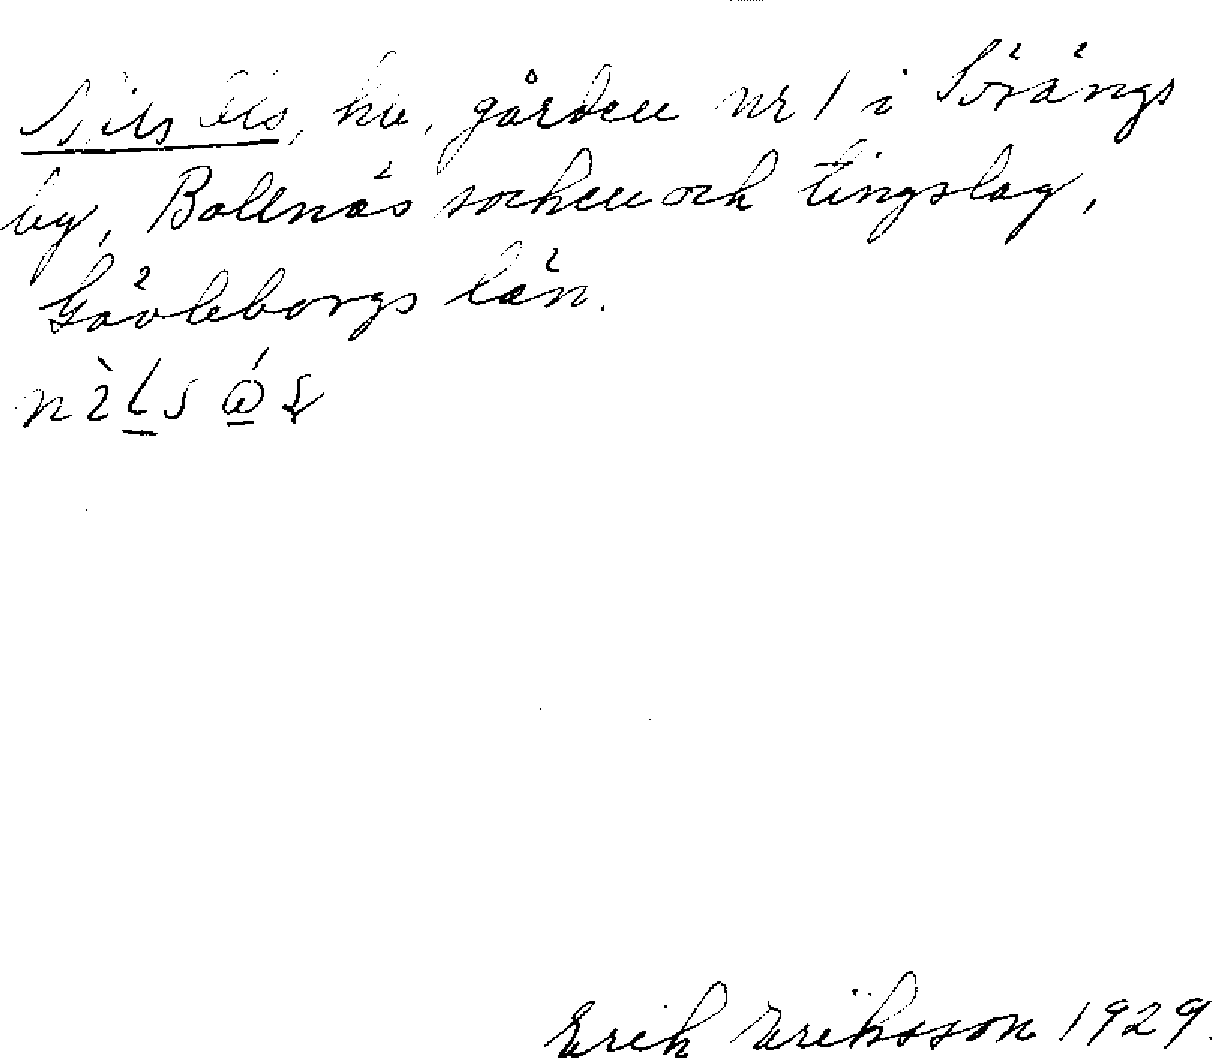 Nils Ols, hu, gården nr 1 i Sörängs
by, Bollnäs socken och tingslag,
Gävleborgs län.
Erik Eriksson 1929.